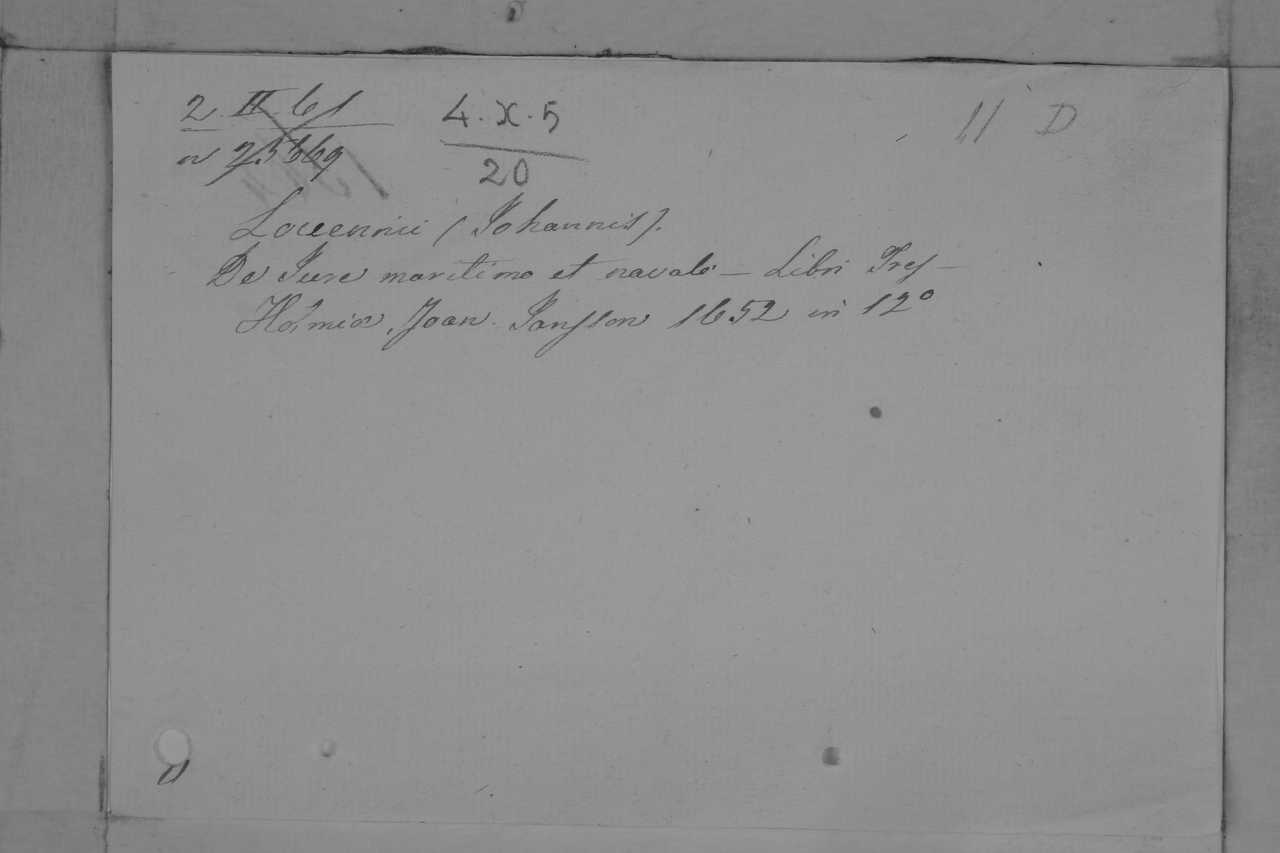 2. II 61
4. X. 5
11 D
20
Loccennii (Johannis).
De Jure maritimo et navali — Libri Tres —
Holmiæ, Joan. Jansson 1652 in 12º